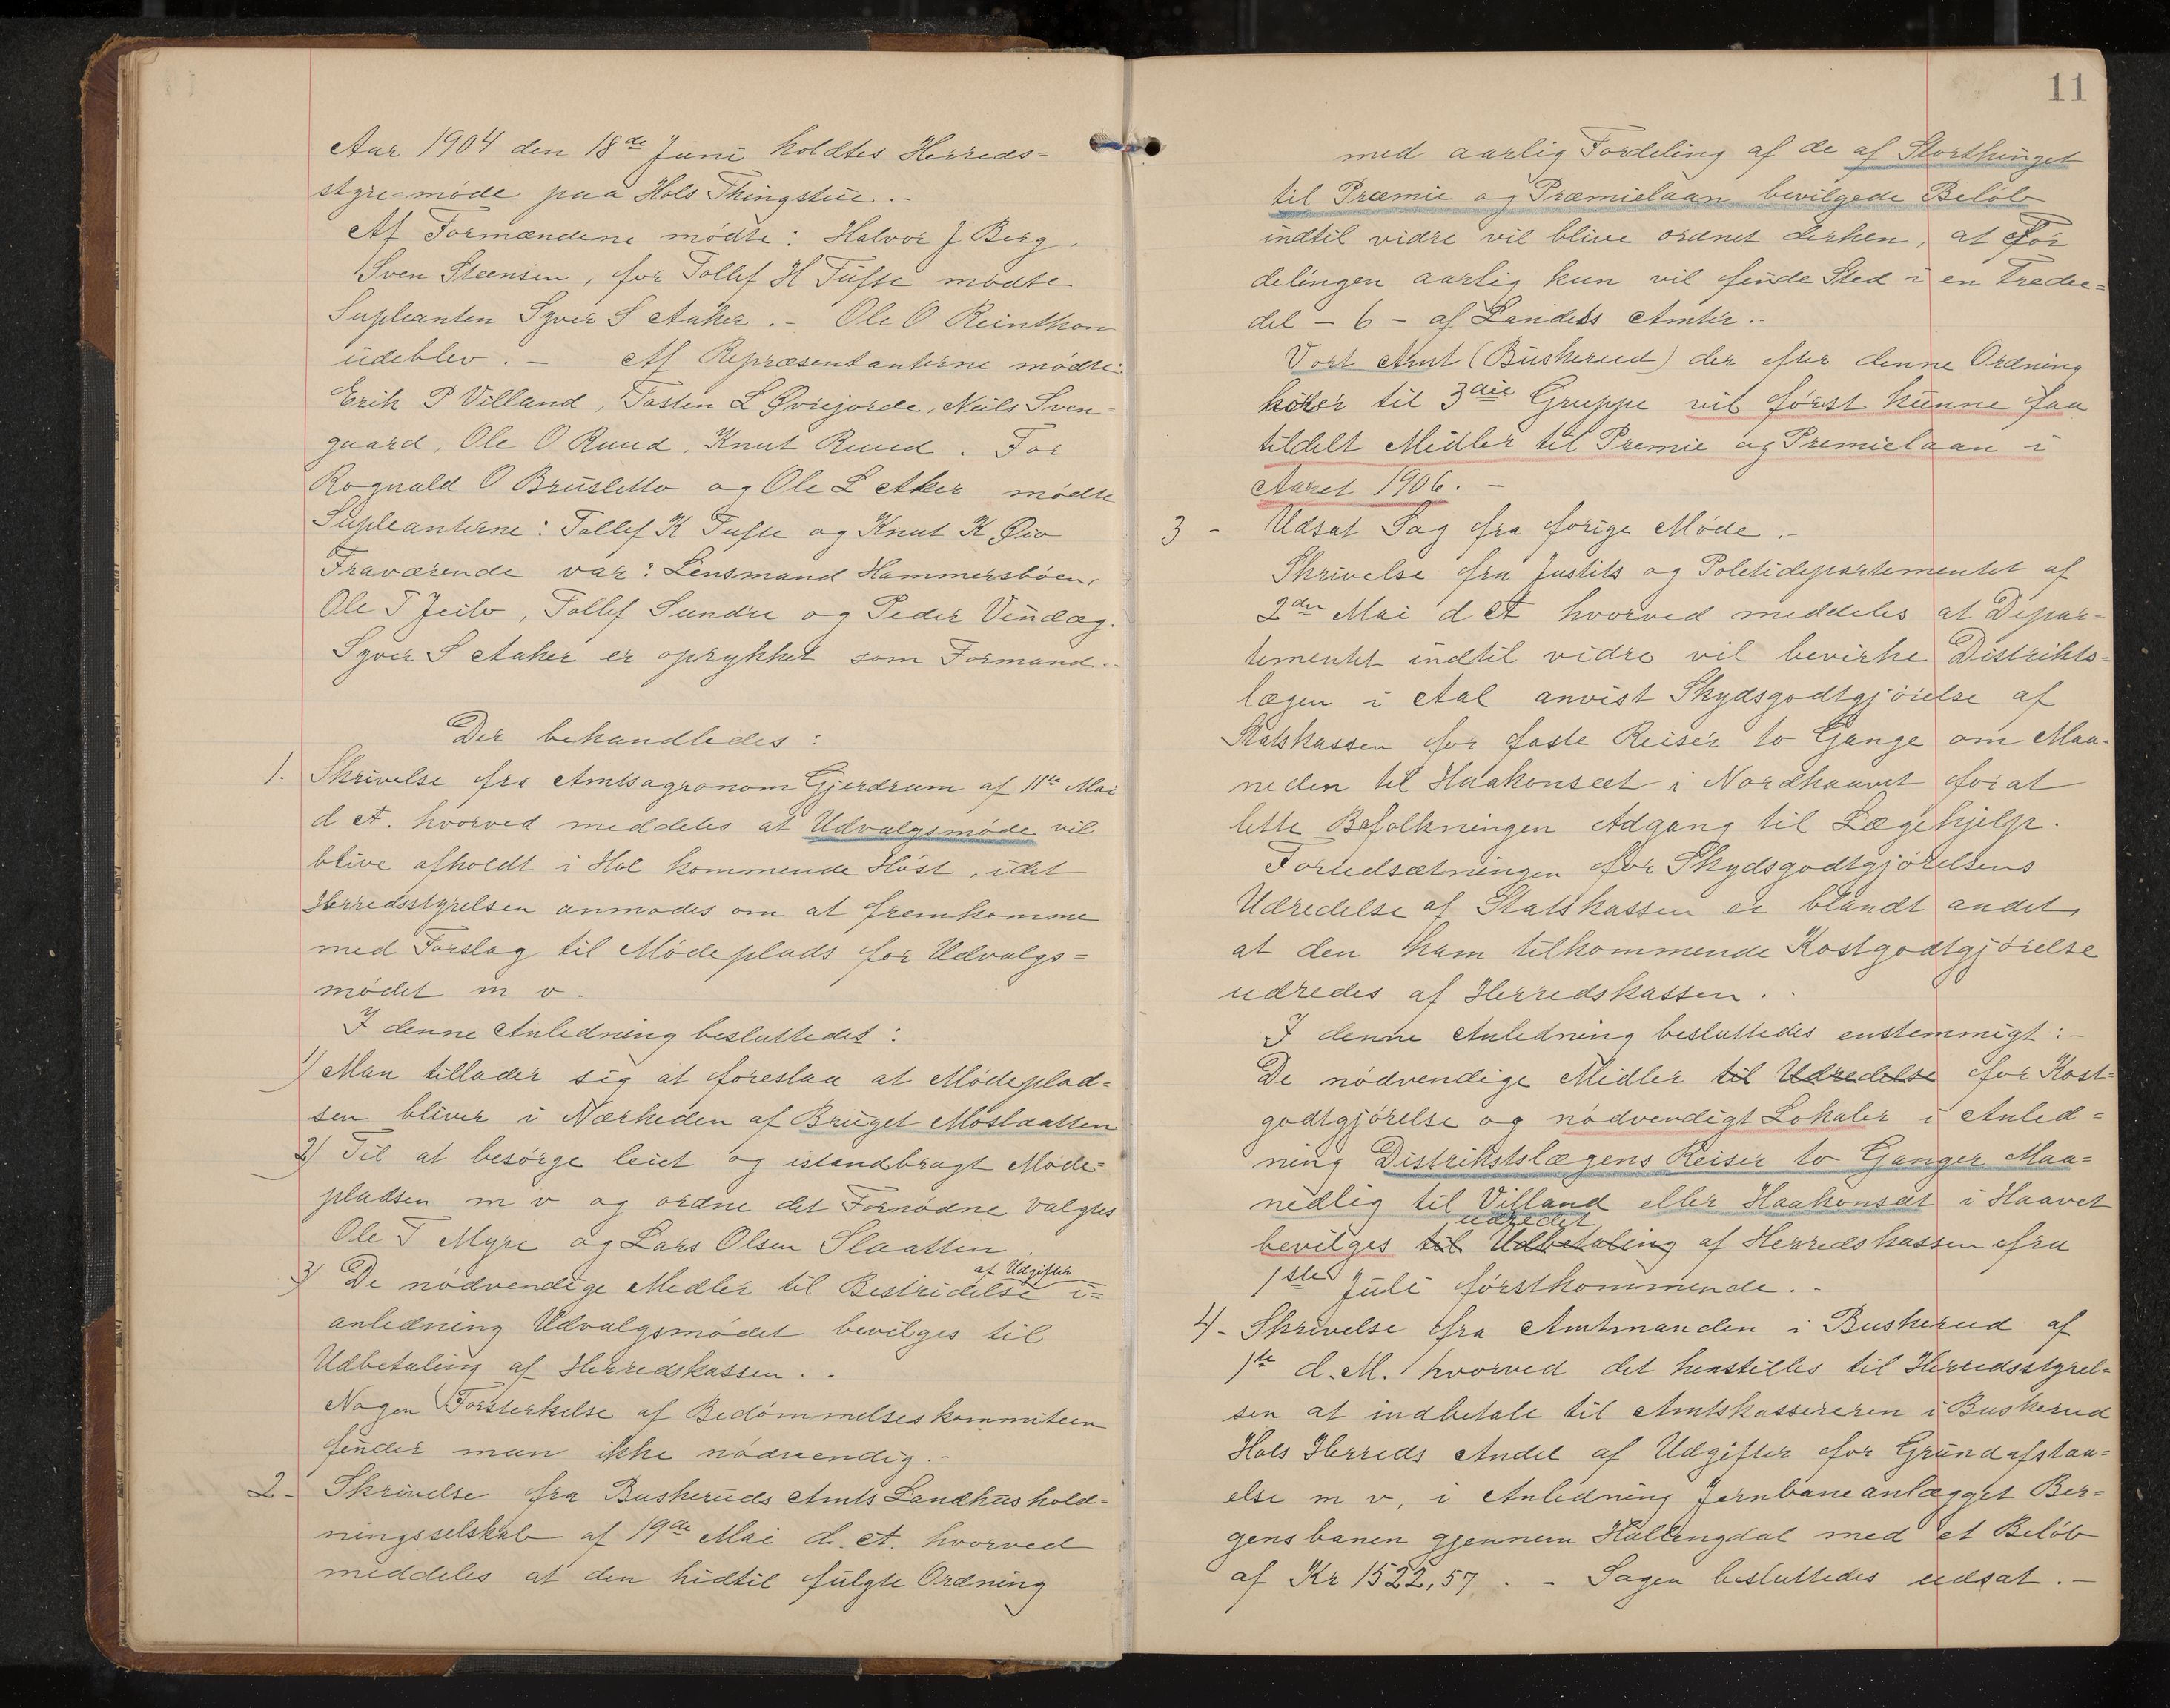 Aar 1904 den 18de Juni holdtes Herreds=
styre=møde paa Hols Thingstue.-
Af Formændene mødte: Halvor J Berg,
Sven Steensen, for Tollef H Tufte mødte
Supleanten Syver S Aaker.- Ole O Reinthon
udeblev. - Af Repræsentanterne mødte:
Erik P Villand, Tosten L Øviejorde, Neils Sven=
gaard, Ole O Ruud, Knut Ruud. For
Rognald O Brusletto og Ole L Aker mødte
Supleanterne: Tollef K Tufte og Knut K Øio
Fraværende var: Lensmand Hammersbøen,
Ole T Jeilo, Tollef Sundre og Peder Vindæg.
Syver S Aaker er oprykket som Formand.-
Der behandledes:
1. Skrivelse fra Amtsagronom Gjerdrum af 11te Mai
d A. hvorved meddeles at Udvalgsmøde vil
blive afholdt i Hol kommende Høst, idet
Herredsstyrelsen anmodes om at fremkomme
med Forslag til Mødeplads for Udvalgs=
mødet m v.
I denne Anledning besluttedes:
1) Man tillader sig at foreslaa at Mødeplad=
sen bliver i Nærheden af Bruget Moslaatten
2) Til at besørge leiet og istandbragt Møde=
pladsen m v og ordne det Fornødne valgtes
Ole T Myre og Lars Olsen Slaatten.
af Udgifter
3) De nødvendige Medler til Bestridelse i=
anledning Udvalgsmødet bevilges til
Udbetaling af Herredskassen. .
Nogen Forsterkelse af Bedømmelseskommiteen
finder man ikke nødvendig.-
2- Skrivelse fra Buskeruds Amts Landhushold=
ningsselskab af 19de Mai d. A. hvorved
meddeles at den hidtil fulgte Ordning
11
med aarlig Fordeling af de af Storthinget
til Præmie og Præmielaan bevilgede Beløb
indtil vidre vil blive ordnet derhen, at For
delingen aarlig kun vil finde Sted i en Tredie=
del - 6 - af Landets Amter.-
Vort Amt (Buskerud) der efter denne Ordning
hører til 3die Gruppe vil først kunne faa
tildelt Midler til Premie og Premielaan i
Aaret 1906. -
3 - Udsat Sag fra forige Møde.-
Skrivelse fra Justits og Politidepartementet af
2den Mai d A hvorved meddeles at Depar=
tementet indtil vidre vil bevirke Distrikts=
lægen i Aal anvist Skydsgodtgjørelse af
Statskassen for faste Reiser to Gange om Maa-
neden til Haakonsæt i Nordhaavet forat
lette Befolkningen Adgang til Lægehjelp.
Forudsætningen for Skydsgodtgjørelsens
Udredelse af Statskassen er blandt andet,
at den ham tilkommende Kostgodtgjørelse
udredes af Herredskassen. .
I denne Anledning besluttedes enstemmigt:-
De nødvendige Midler til Udredelse for Kost=
godtgjørelse og nødvendigt Lokaler i Anled=
ning Distriktslægens Reiser to Ganger Maa=
nedlig til Villand eller Haakonsæt i Haavet
udredet
bevilges til Udbetaling af Herredskassen fra
1ste Juli førstkommende. -
4- Skrivelse fra Amtmanden i Buskerud af
1te d. M. hvorved det henstilles til Herredsstyrel=
sen at indbetale til Amtskassereren i Buskerud
Hols Herreds Andel af Udgifter for Grundafstaa=
else m v, i Anledning Jernbaneanlægget Ber=
gensbanen gjennem Hallingdal med et Beløb
af Kr 1522,57. - Sagen besluttedes udsat.-